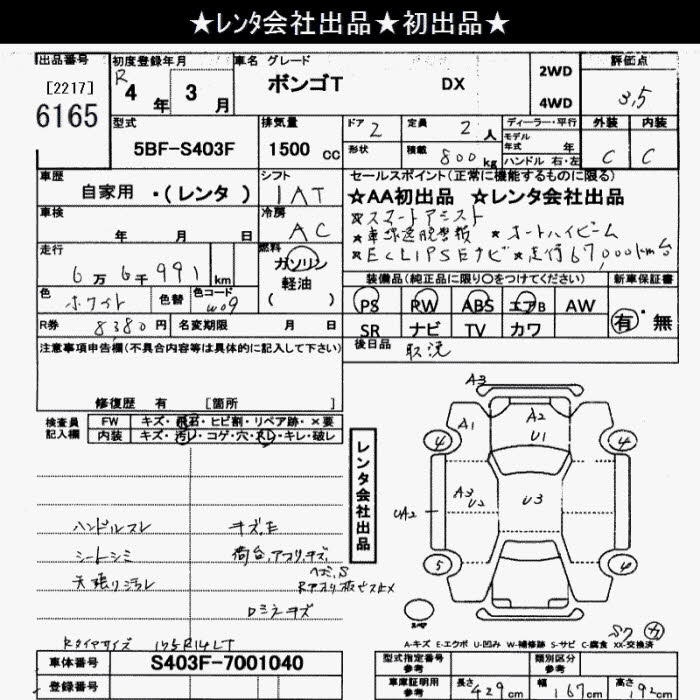 ★レンタ会社出品★初出品★
出品番号 初度登録年月 車名 グレード 評価点
[2217] R 4年 3月 ボンゴT DX 2WD 3,5
6165 4WD
型式 排気量 ドア 2 定員 2人 ディーラー・平行 外装 内装
5BF-S403F 1500cc 形状 積載 800kg モデル年式 年 C C
ハンドル 右・左
車歴 シフト セールスポイント(正常に機能するものに限る)
自家用 ・(レンタ) IAT ☆AA初出品 ☆レンタ会社出品
車検 冷房 ☆スマートアシスト
年 月 日 AC ★車線逸脱警報 ★オートハイビーム
走行 燃料 ★ECLIPSEナビ ★走行67,000km台
6万6千991km ガソリン 軽油 ( ) 装備品(純正品に限り〇をつけてください) 新車保証書
色 ホワイト 色替 色コード W09 PS PW ABS エアB AW 有・無
R券 8380円 名変期限 月 日 SR ナビ TV カワ
注意事項申告欄(不具合内容等は具体的に記入して下さい) 後日品 取説
修復歴 有 [箇所
検査員記入欄 FW キズ・飛石・ヒビ割・リペア跡・×要
内装 キズ・汚レ・コゲ・穴・スレ・キレ・破レ
レンタ会社出品
A3
A1 A2
4 U1 4
A3 U2 U3
UA2
5 4
ハンドルスレ キズ,E
シートシミ 荷台,アオリ,キズ,
天張りシミ ヘコミ,S
ロミラーキズ
スペア
Rタイヤサイズ 175R14LT
A-キズ E-エクボ U-凹み W-補修跡 S-サビ C-腐食 XX-交換済
車体番号 S403F-7001040 型式指定番号 参考 類別区分 参考
登録番号 車庫証明用 参考 長さ 429cm 幅 167cm 高さ 192cm